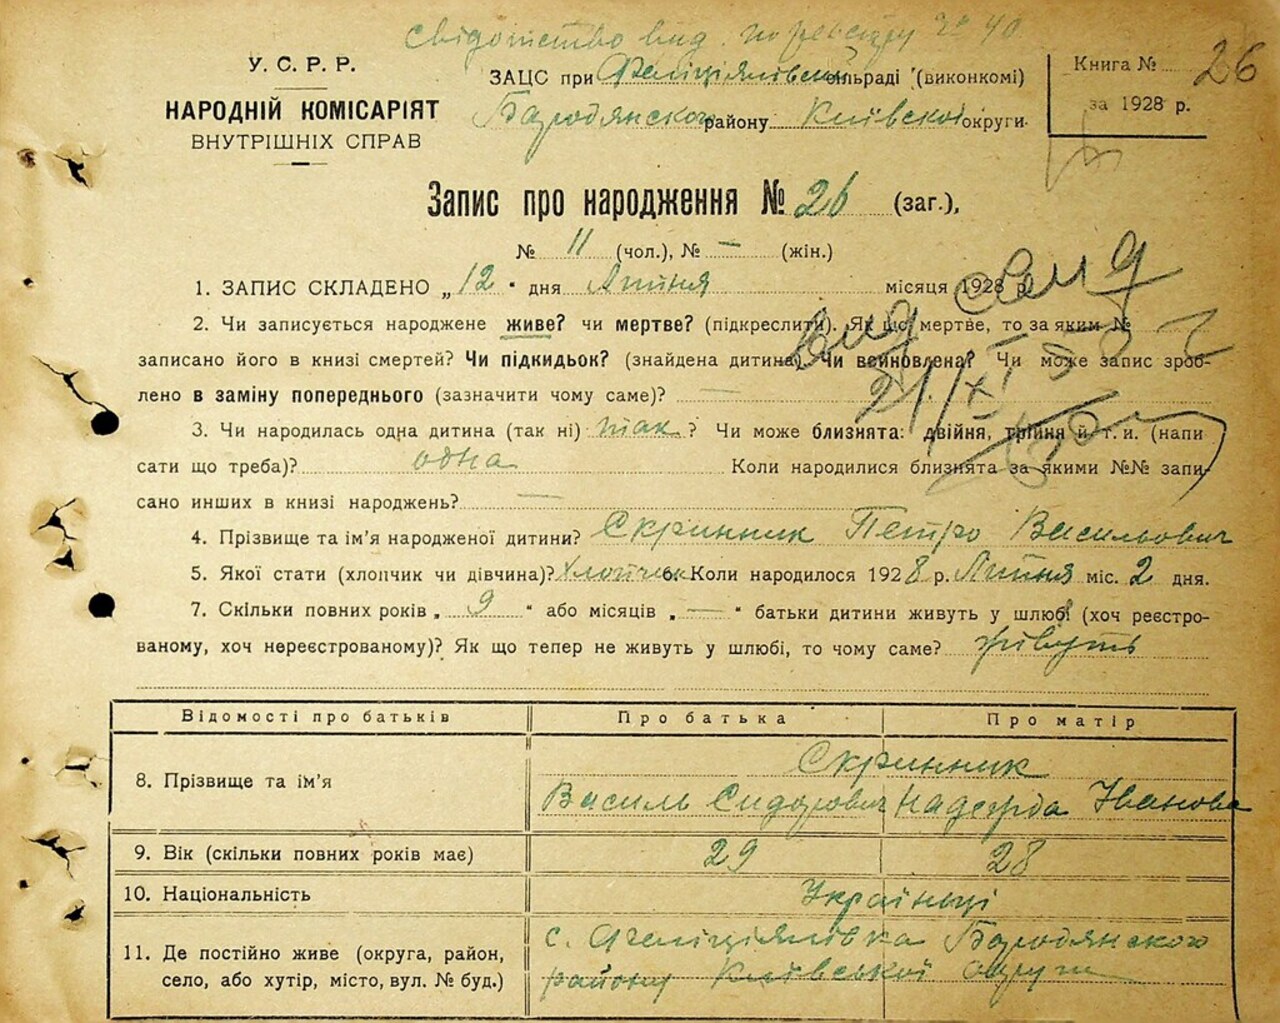 свідотство вид. по реєстру № 40
У. С. Р. Р.
НАРОДНІЙ КОМІСАРІЯТ
ВНУТРІШНІХ СПРАВ
ЗАЦС при Феліціялівській сільраді (виконкомі)
Бародянського району Київської округи
Книга № 26
за 1928 р.
Запис про народження № 26 (заг.),
№ 11 (чол.), № — (жін.)
1. ЗАПИС СКЛАДЕНО „12" дня Липня місяця 1928 р.
2. Чи записується народжене живе? чи мертве? (підкреслити). Як що мертве, то за яким №
записано його в книзі смертей? Чи підкидьок? (знайдена дитина). Чи всиновлена? Чи може запис зроб-
лено в заміну попереднього (зазначити чому саме)? —
3. Чи народилась одна дитина (так ні) так ? Чи може близнята: двійня, трійня й т. и. (напи
сати що треба)? одна Коли народилися близнята за якими №№ запи-
сано инших в книзі народжень? —
4. Прізвище та ім'я народженої дитини? Скринник Петро Васильович
5. Якої стати (хлопчик чи дівчина)? Хлопчик 6. Коли народилося 1928 р. Липня міс. 2 дня.
7. Скільки повних років „ 9 " або місяців „ — " батьки дитини живуть у шлюбі (хоч реєстро-
ваному, хоч нереєстрованому)? Як що тепер не живуть у шлюбі, то чому саме? живуть
Відомості про батьків Про батька Про матір
8. Прізвище та ім'я Скринник
Василь Сидорович Надежда Іванова
9. Вік (скільки повних років має) 29 28
10. Національність Українці
11. Де постійно живе (округа, район,
село, або хутір, місто, вул. № буд.)
с. Феліціялівка Бародянского
району Київської округи